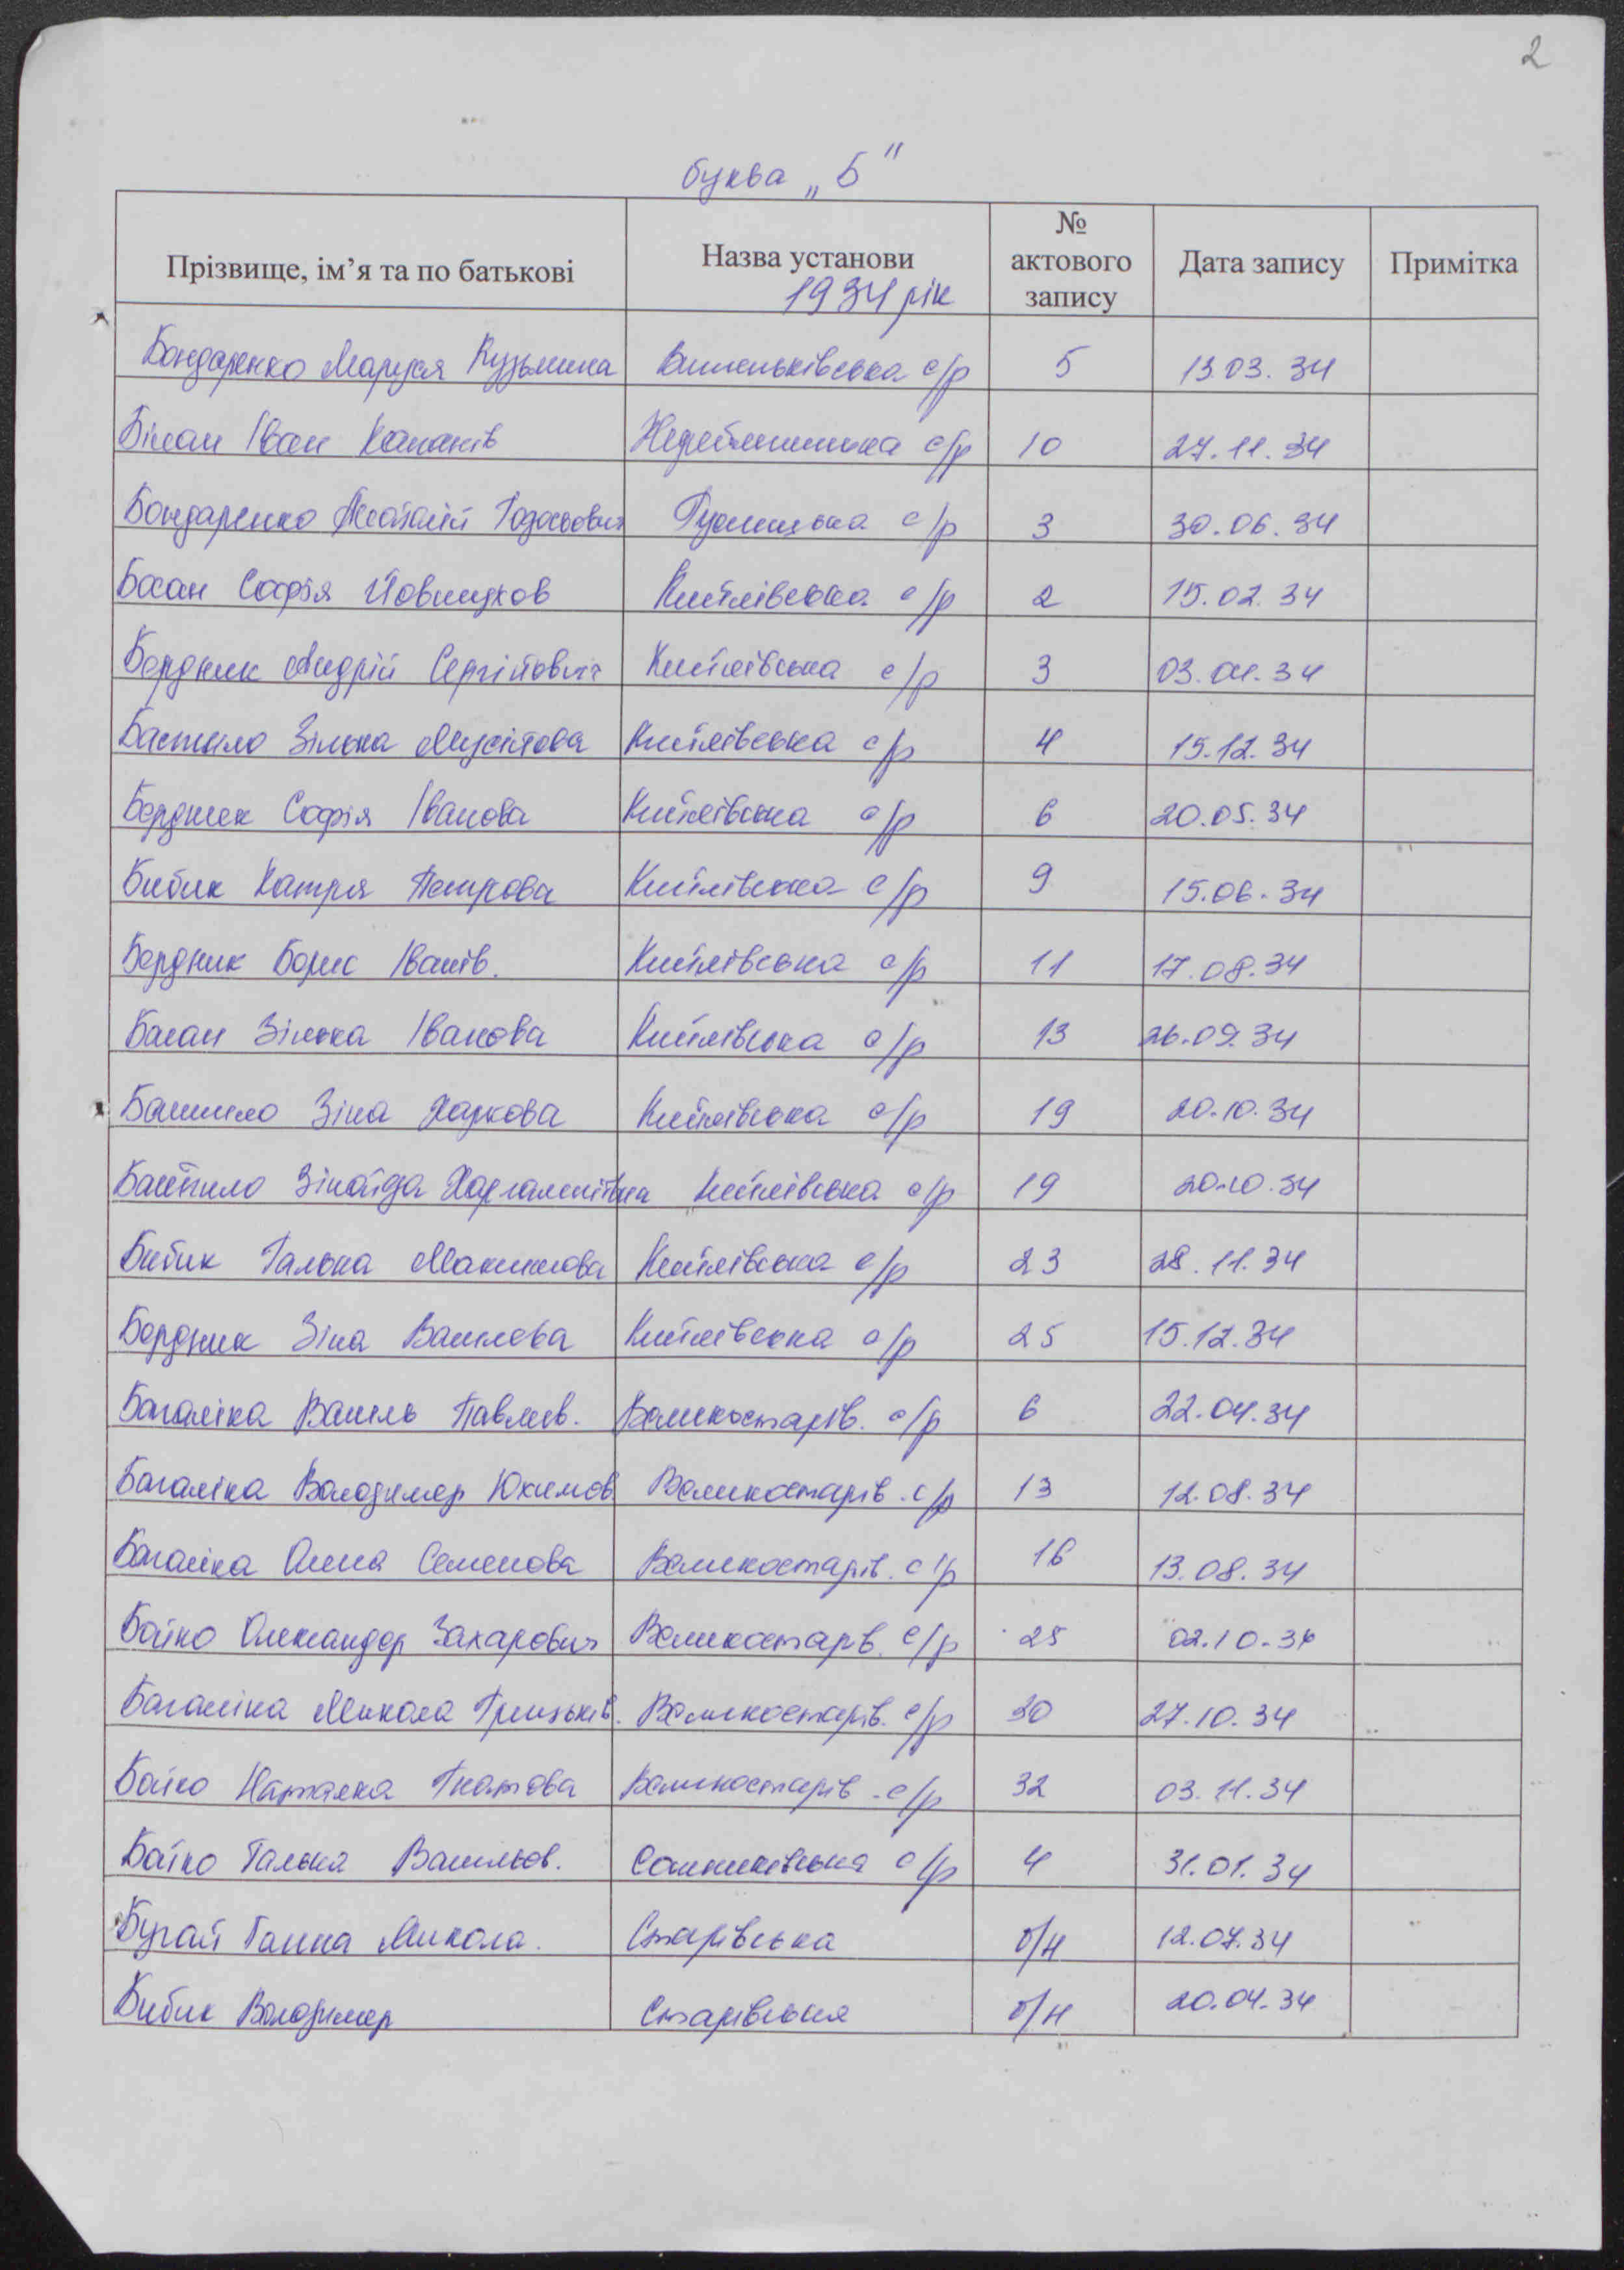 2
буква „Б"
Прізвище, ім'я та по батькові Назва установи 1934 рік № актового запису Дата запису Примітка
Бондаренко Маруся Кузьмина Вишеньківська с/р 5 13.03.34
Білан Іван с/р 10 27.11.34
Бондаренко Тодосьович с/р 3 30.06.34
Басан Софія Кийлівська с/р 2 15.02.34
Бердник Андрій Сергійович Кийлівська с/р 3 03.04.34
Бастило Зілька Мусійова Кийлівська с/р 4 15.12.34
Бердник Софія Іванова Кийлівська с/р 6 20.05.34
Бибик Катря Петрова Кийлівська с/р 9 15.06.34
Бердник Борис Іванів. Кийлівська с/р 11 17.08.34
Зілька Іванова Кийлівська с/р 13 26.09.34
Зіна Харкова Кийлівська с/р 19 20.10.34
Зінаїда Харлампіївна Кийлівська с/р 19 20.10.34
Бибик Галька Максимова Кийлівська с/р 23 28.11.34
Бердник Зіна Василева Кийлівська с/р 25 15.12.34
Багаліка Василь Павлов. Великостарів. с/р 6 22.04.34
Багаліка Володимер Юхимов Великостарів. с/р 13 12.08.34
Багаліка Семенова Великостарів. с/р 16 13.08.34
Бойко Олександер Захарович Великостарів. с/р 25 02.10.34
Багаліка Микола Грицьків. Великостарів. с/р 30 27.10.34
Бойко Наталка Гнатова Великостарів. с/р 32 03.11.34
Бойко Галька Васильов. Сошниківська с/р 4 31.01.34
Бугай Ганна Микола. Старівська б/н 12.07.34
Бибик Володимер Старівська б/н 20.04.34